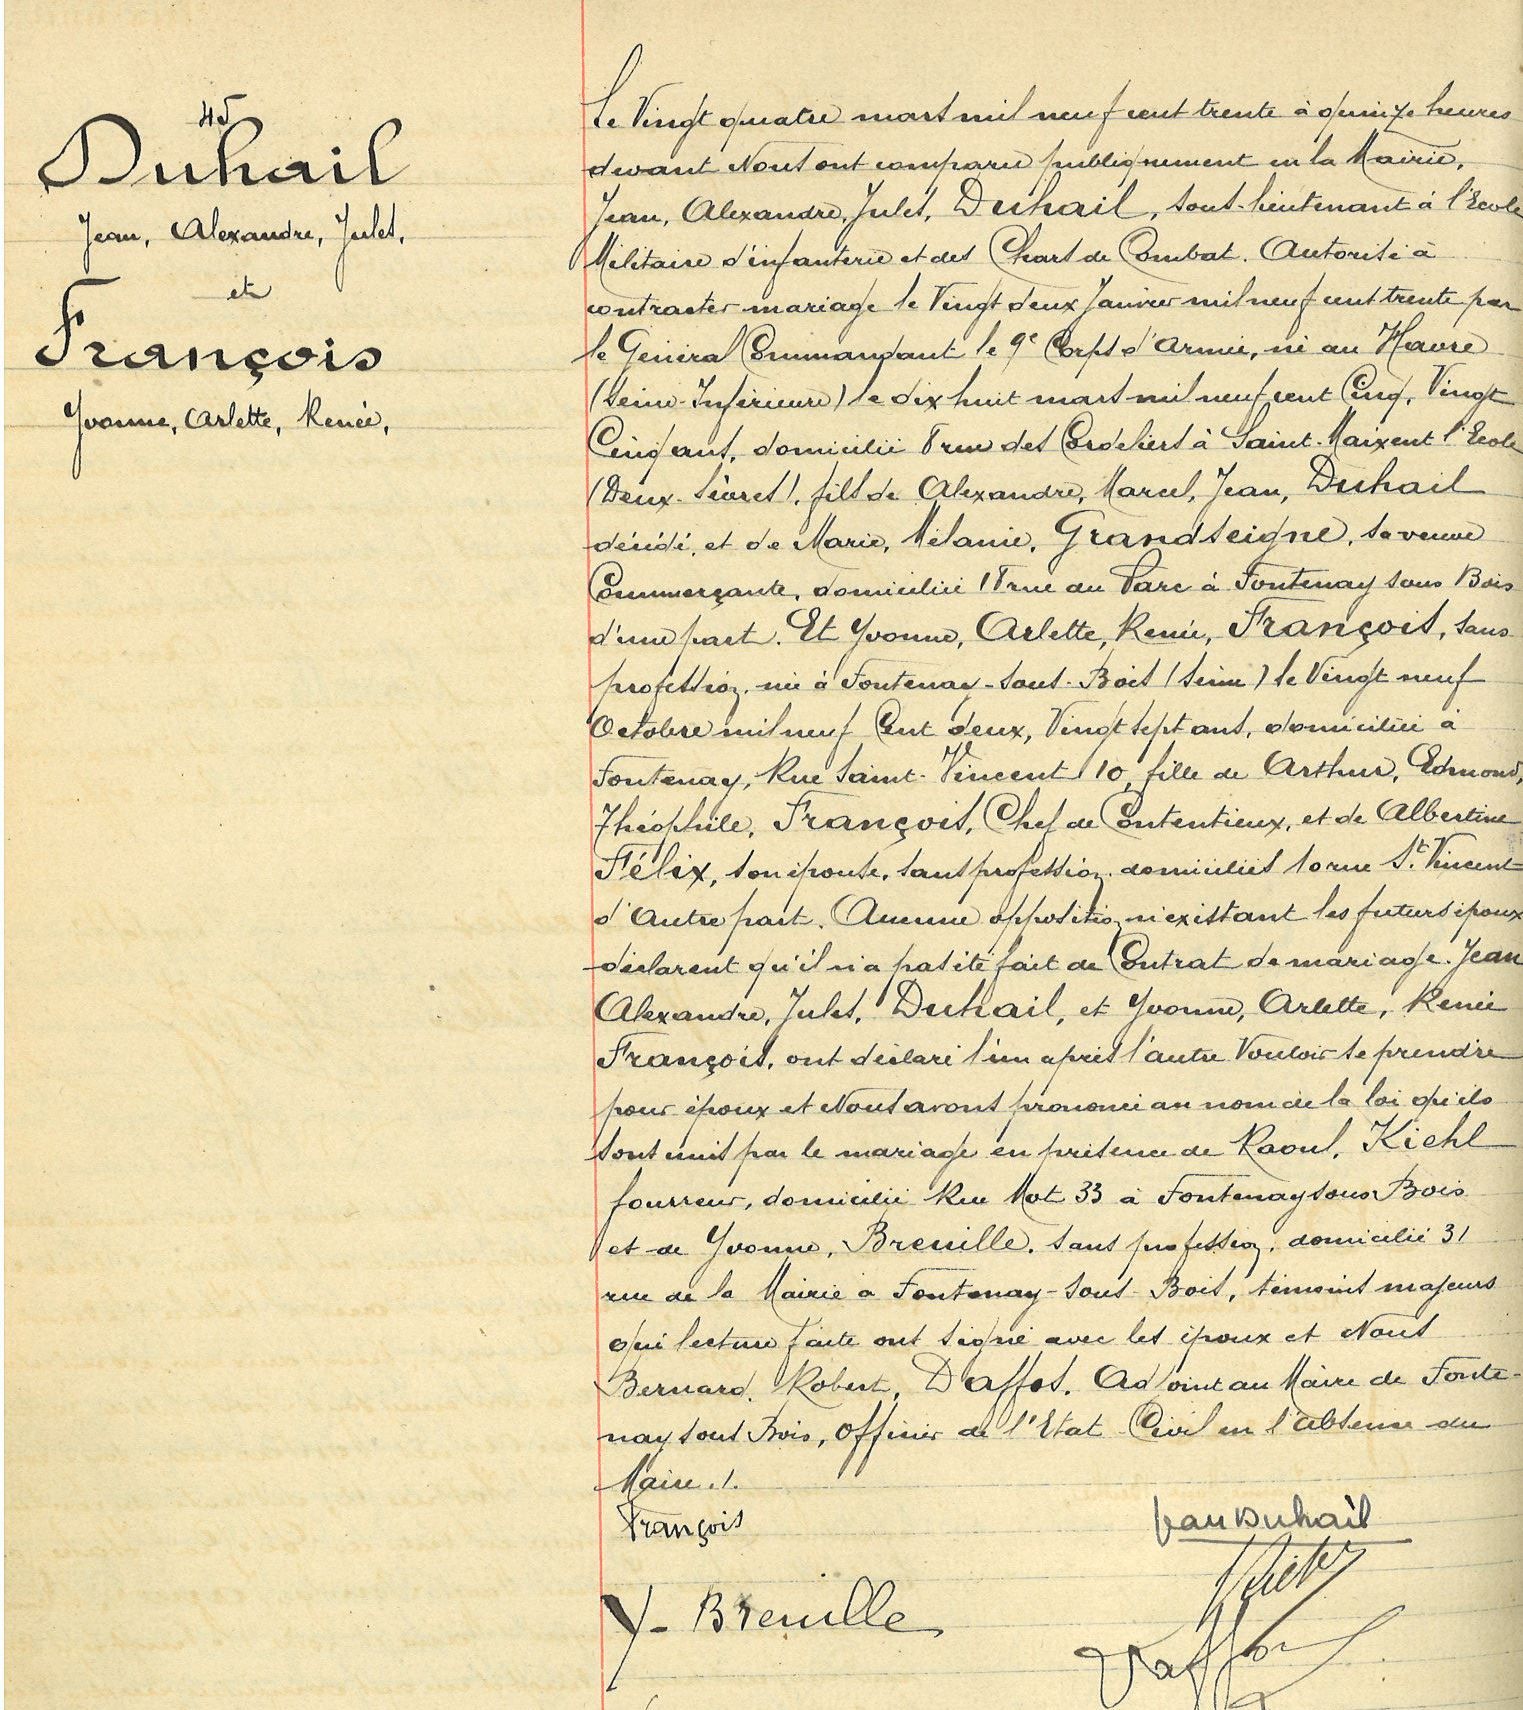 45
Duhail
Jean, Alexandre, Jules,
et
François
Yvonne, Arlette, Renée,
Le Vingt quatre mars mil neuf cent trente à quinze heures
devant Nous ont comparu publiquement en la Mairie,
Jean, Alexandre, Jules, Duhail, sous-lieutenant à l'Ecole
Militaire d'infanterie et des Chars de Combat. Autorisé à
contracter mariage le Vingt deux Janvier mil neuf cent trente par
le Général Commandant le 9e Corps d'Armée, né au Havre
(Seine-Inférieure) le dix huit mars mil neuf cent Cinq, Vingt
Cinq ans, domicilié 8 rue des Cordeliers à Saint-Maixent l'Ecole
(Deux-Sèvres), fils de Alexandre, Marcel, Jean, Duhail
décédé, et de Marie, Mélanie, Grandseigne, sa veuve
Commerçante, domiciliée 18 rue du Parc à Fontenay sous Bois
d'une part. Et Yvonne, Arlette, Renée, François, sans
profession, née à Fontenay-sous-Bois (Seine) le Vingt neuf
Octobre mil neuf Cent deux, Vingt sept ans, domiciliée à
Fontenay, Rue Saint-Vincent 10, fille de Arthur, Edmond,
Théophile, François, Chef de Contentieux, et de Albertine
Félix, son épouse, sans profession, domiciliés 10 rue St. Vincent
d'Autre part. Aucune opposition n'existant les futurs époux
déclarent qu'il n'a pas été fait de Contrat de mariage. Jean
Alexandre, Jules, Duhail, et Yvonne, Arlette, Renée
François, ont déclaré l'un après l'autre Vouloir se prendre
pour époux et Nous avons prononcé au nom de la loi qu'ils
sont unis par le mariage en présence de Raoul, Kiehl
fourreur, domicilié Rue Mot 33 à Fontenay sous Bois
et de Yvonne, Breuille, sans profession, domicilié 31
rue de la Mairie à Fontenay-sous-Bois, témoins majeurs
qui lecture faite ont signé avec les époux et Nous
Bernard, Robert, Daffos, Adjoint au Maire de Fonte-
nay sous Bois, Officier de l'Etat Civil en l'absence du
Maire ./.
François
Jean Duhail
Y- Breuille
Daffos